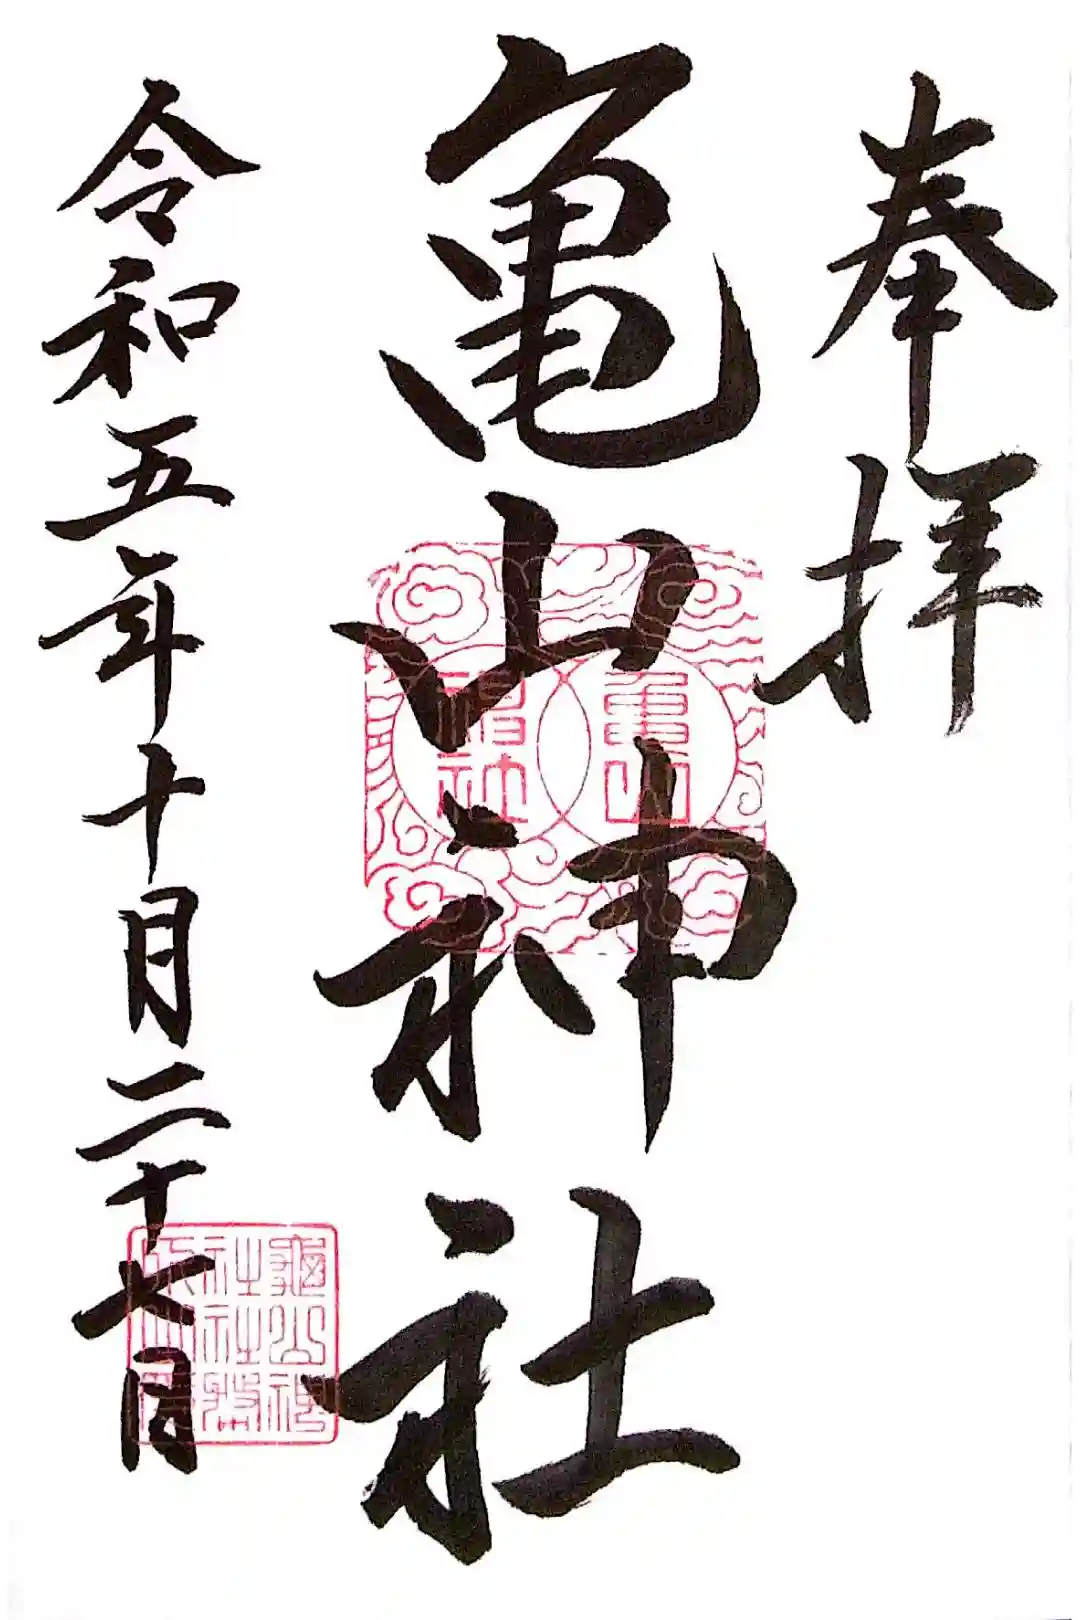 奉拝
亀山神社
令和五年十月二十七日
亀山
神社